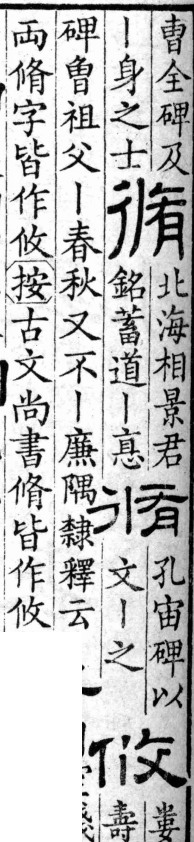 曹全碑及
丨身之士
脩
北海相景君
銘蓄道丨悳
脩
孔宙碑以
文丨之
攸
婁
壽
碑曾祖父丨春秋又不丨廉隅隸釋云
両脩字皆作攸按古文尚書脩皆作攸